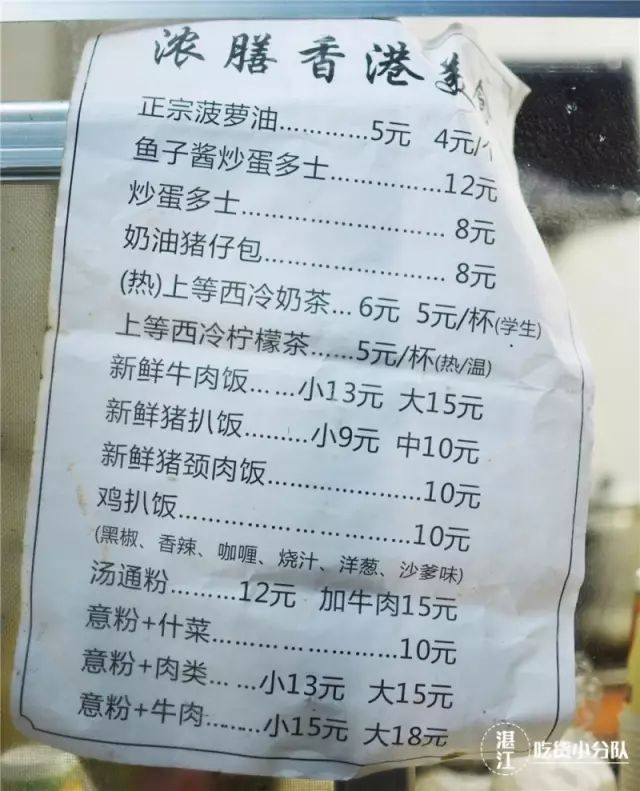 浓膳香港美食
正宗菠萝油............5元 4元/个
鱼子酱炒蛋多士................12元
炒蛋多士........................ 8元
奶油猪仔包..................... 8元
(热)上等西冷奶茶... 6元 5元/杯(学生)
上等西冷柠檬茶......5元/杯(热/温)
新鲜牛肉饭......小13元 大15元
新鲜猪扒饭.........小9元 中10元
新鲜猪颈肉饭.....................10元
鸡扒饭..............................10元
(黑椒、香辣、咖喱、烧汁、洋葱、沙爹味)
汤通粉.........12元 加牛肉15元
意粉+什菜........................10元
意粉+肉类......小13元 大15元
意粉+牛肉.........小15元 大18元
湛江
吃货小分队